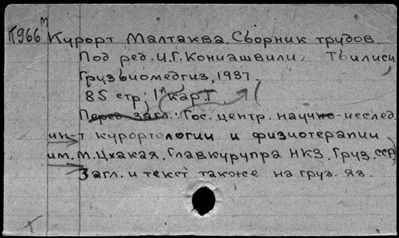 К966 м Курорт Малтаква. Сборник трудов.
Под ред. И.Г. Кониашвили. Тбилиси
Грузбиомедгиз, 1937.
85 стр; 1 л карт
Перед загл.: Гос. центр. научно-исслед.
ин-т курортологии и физиотерапии
им. М. Цхакая. Главкурупра НКЗ. Груз. ССР
Загл. и текст также на груз. яз.